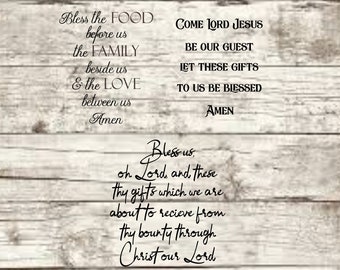 Bless the FOOD
before us
the FAMILY
beside us
& the LOVE
between us
Amen
Come Lord Jesus
be our guest
let these gifts
to us be blessed
Amen
Bless us,
oh Lord, and these
thy gifts which we are
about to recieve from
thy bounty through
Christ our Lord